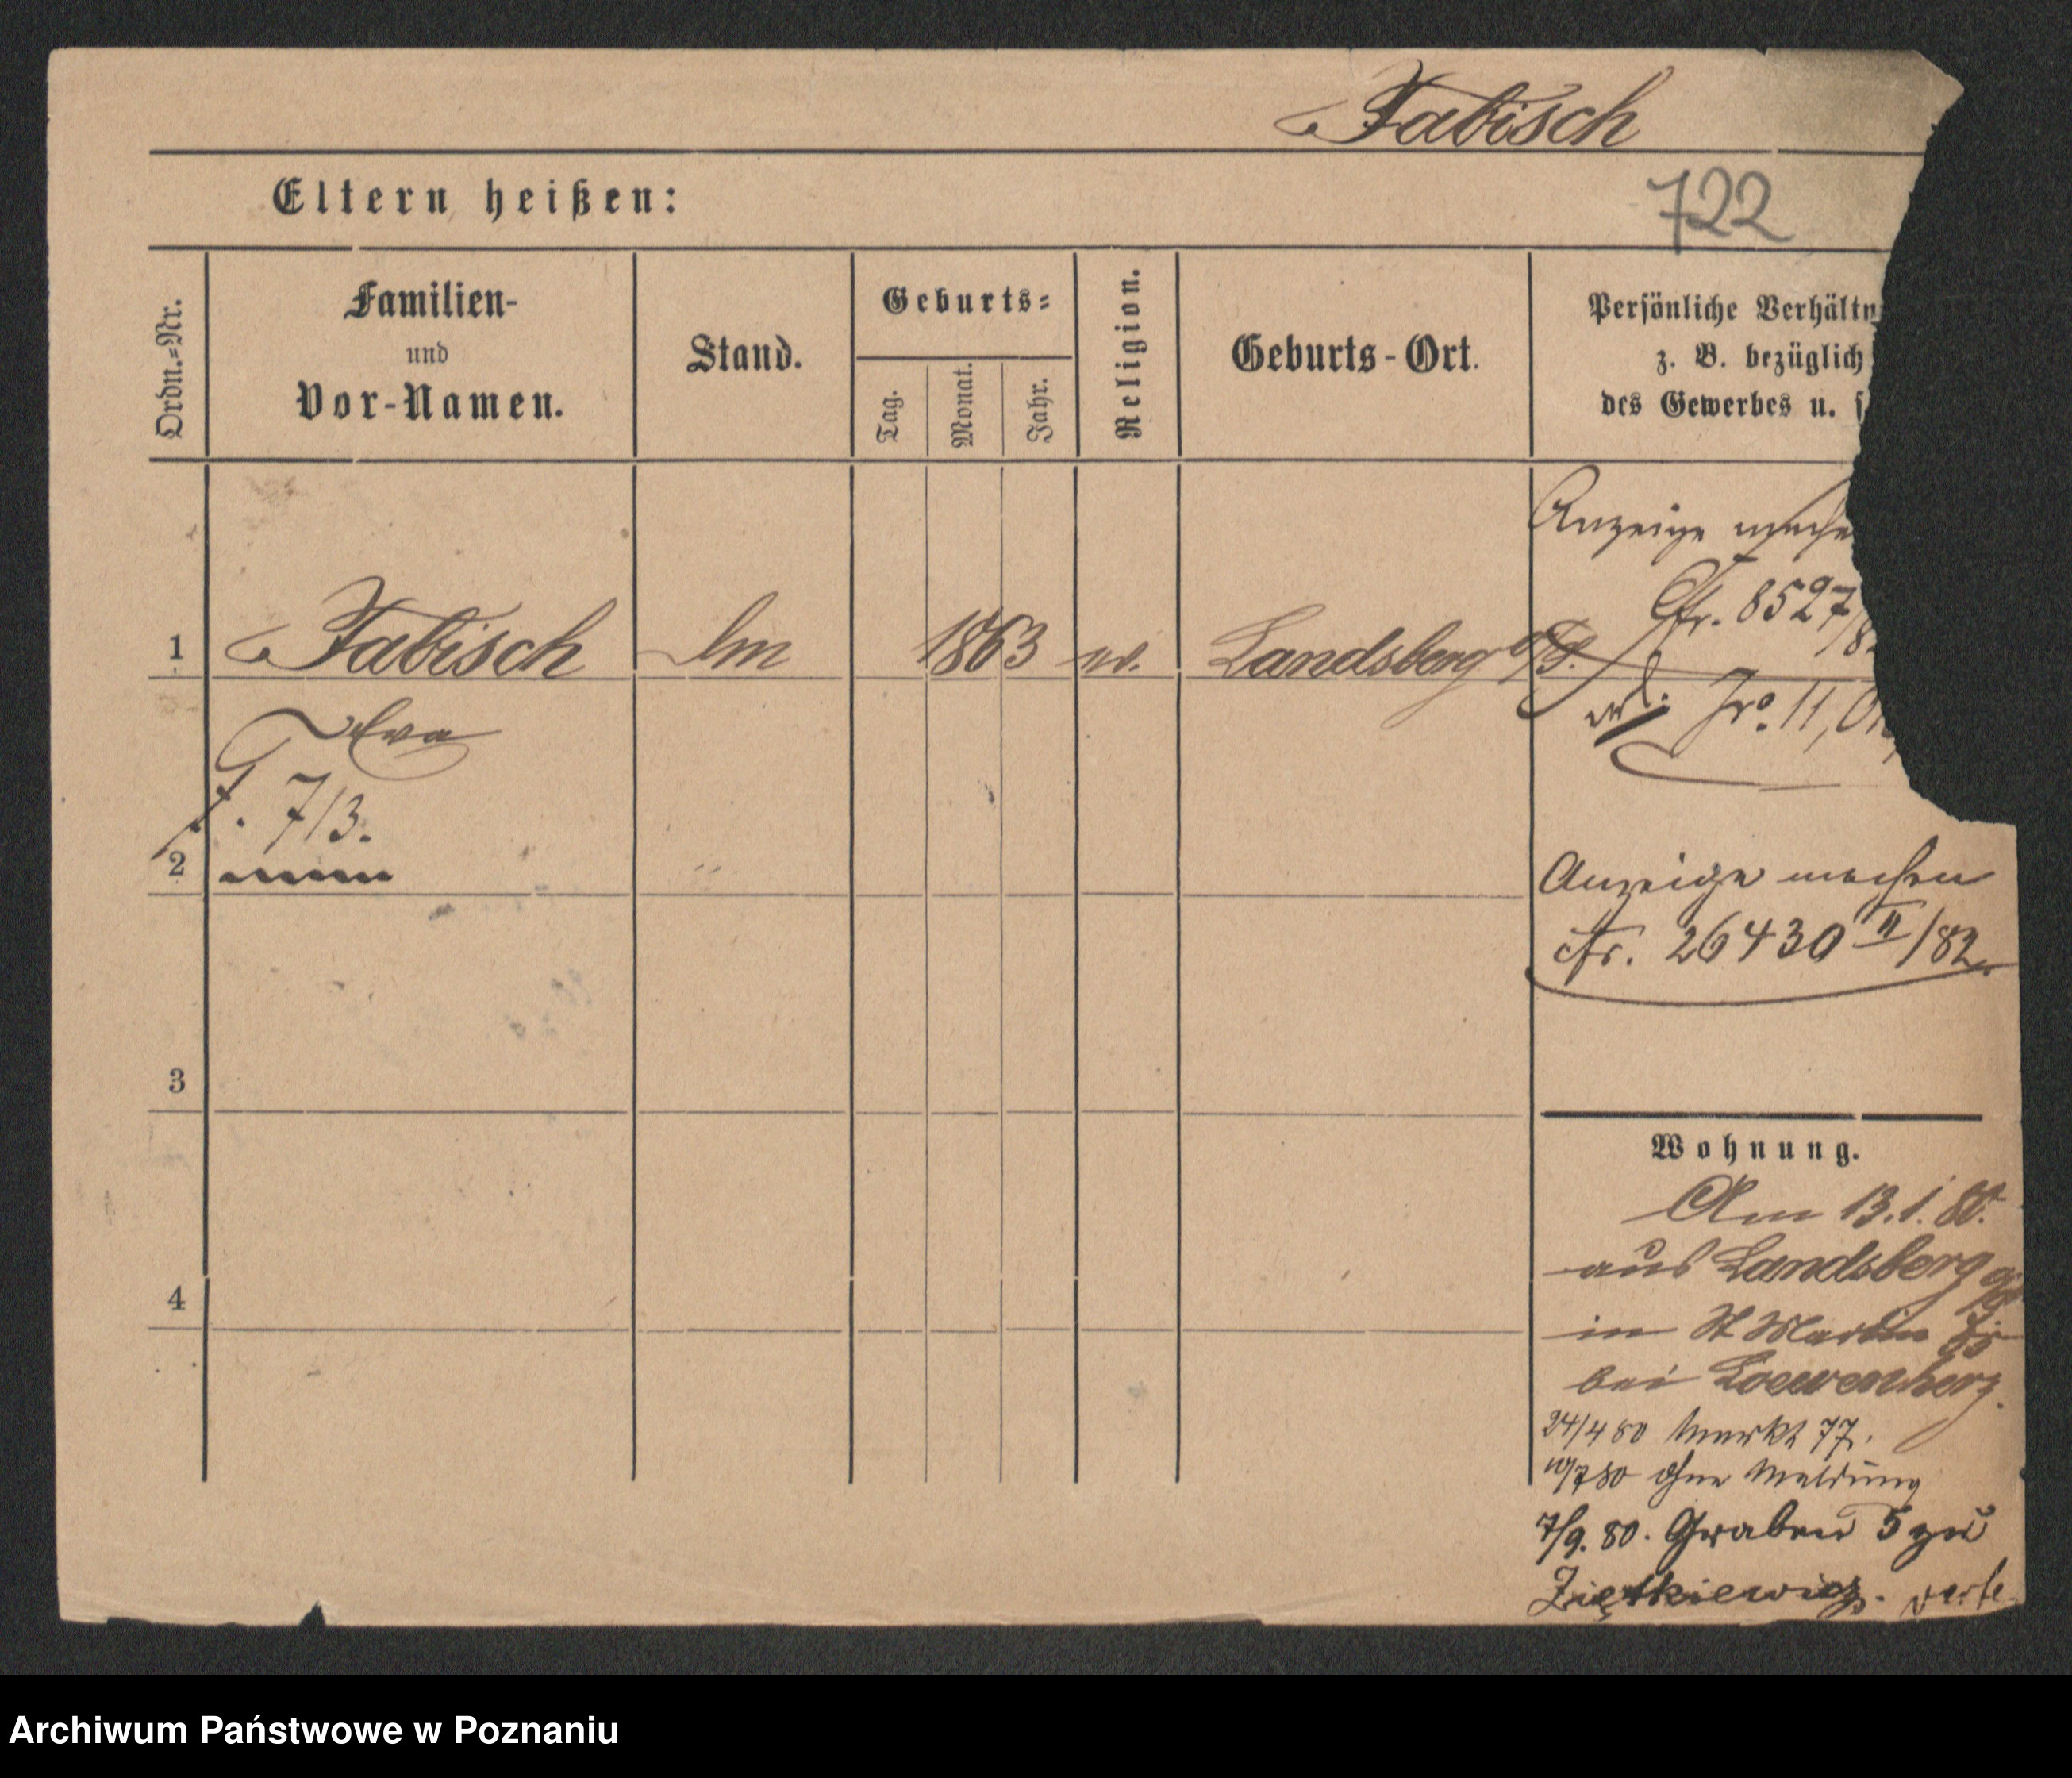 Fabisch
Eltern heißen:
722
Ordn.=Nr.
Familien-
und
Vor-Namen.
Stand.
Geburts=
Tag.
Monat.
Jahr.
Religion.
Geburts-Ort.
Persönliche Verhältn
z. B. bezüglich
des Gewerbes u. s
Anzeige mache
Cfr. 8527/8
1 Fabisch 1863 Landsberg
Eva
713.
11,
2
Anzeige machen
cfr. 26430 II/82
3
Wohnung.
Am 13.1.80.
aus Landsberg
4
in St Martin
bei Loewenherz.
24/4 80 Markt 77.
10/7 80 ohne Meldung
7/9. 80. Graben 5 zu
Ziętkiewicz.
Archiwum Państwowe w Poznaniu